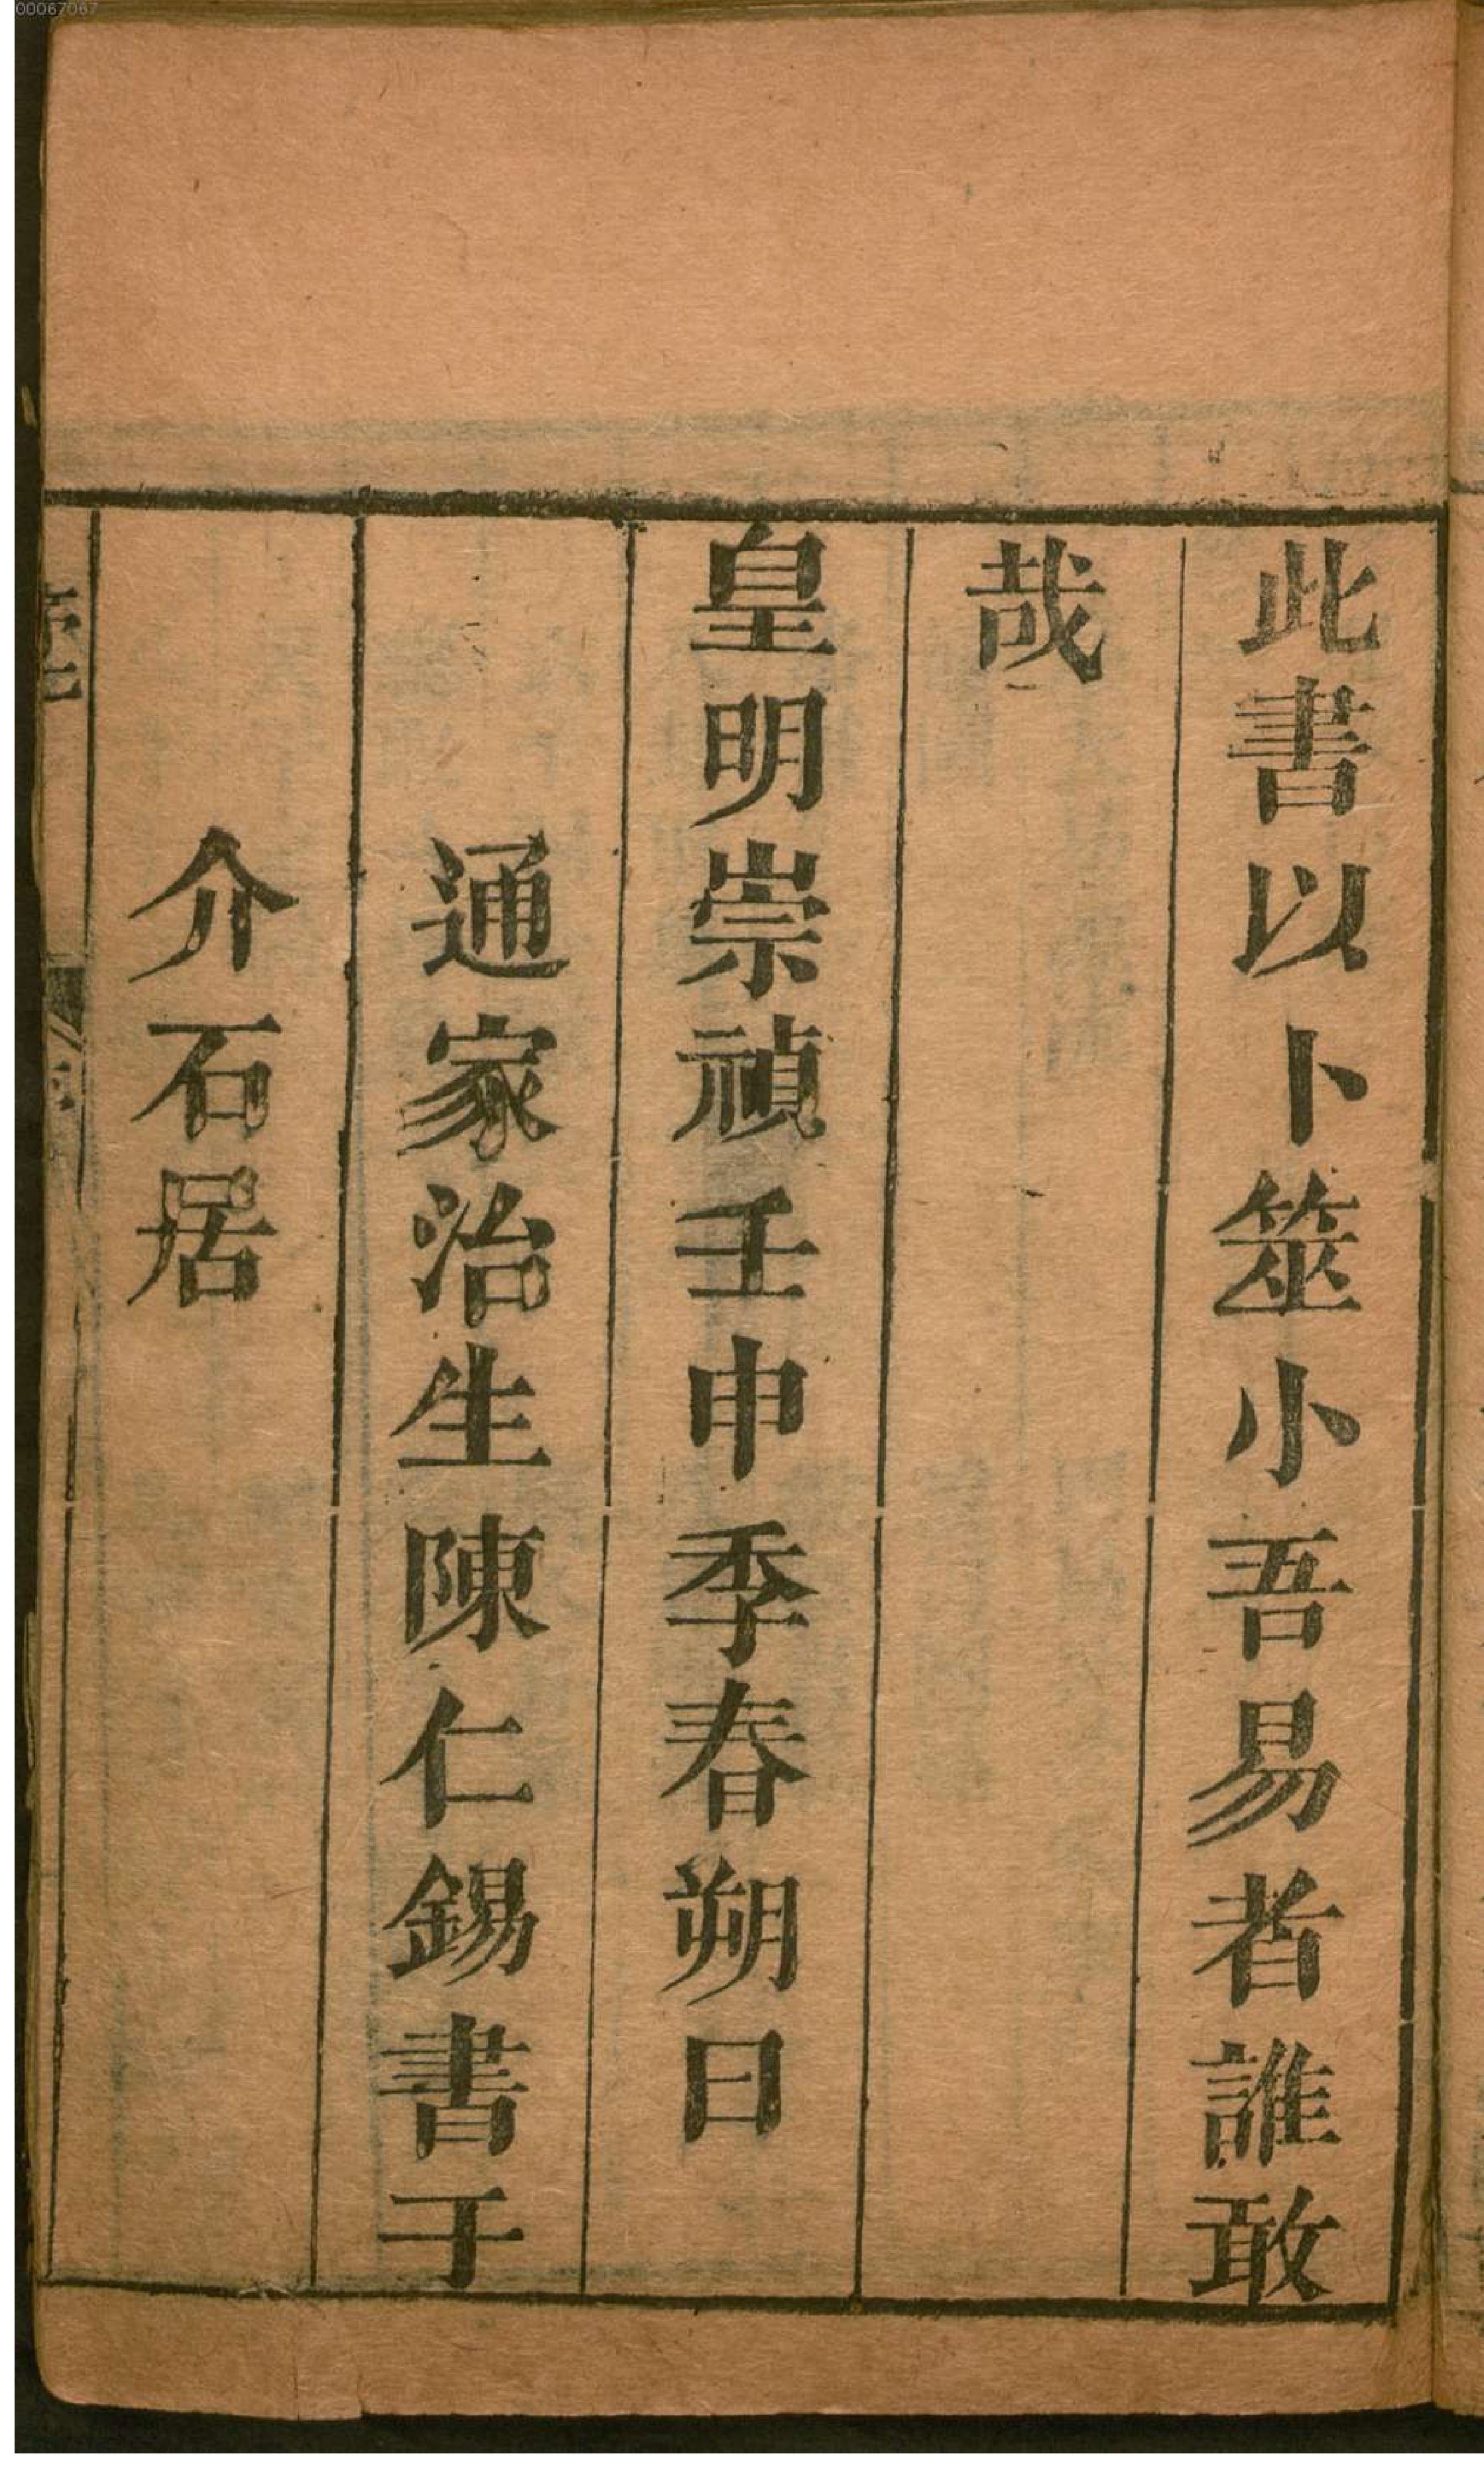 00067067
此書以卜筮小吾易者誰敢
哉
皇明崇禎壬申季春朔日
通家治生陳仁錫書于
介石居